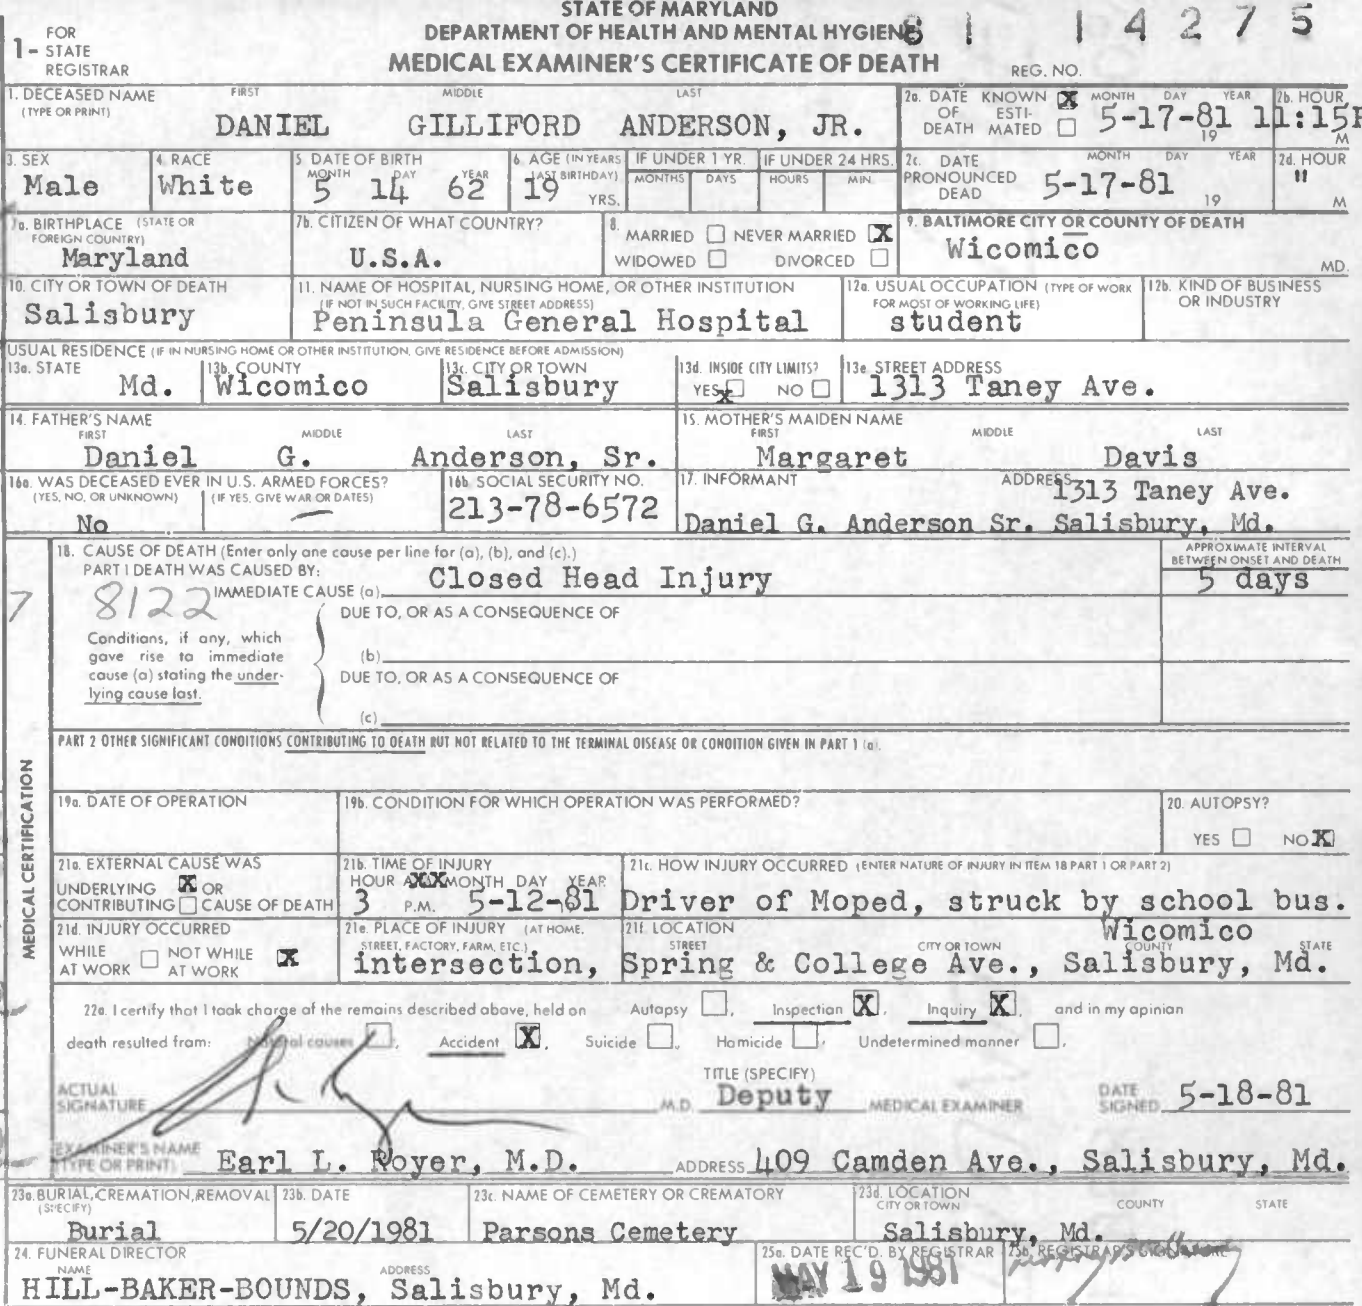 STATE OF MARYLAND
DEPARTMENT OF HEALTH AND MENTAL HYGIENE
MEDICAL EXAMINER'S CERTIFICATE OF DEATH
1- FOR STATE REGISTRAR
81 14275
REG. NO.
1. DECEASED NAME (TYPE OR PRINT) FIRST MIDDLE LAST
DANIEL GILLIFORD ANDERSON, JR.
2a. DATE OF DEATH KNOWN X ESTIMATED MONTH DAY YEAR 5-17-81 19
2b. HOUR 11:15P M
3. SEX Male
4. RACE White
5. DATE OF BIRTH MONTH DAY YEAR 5 14 62
6. AGE (IN YEARS LAST BIRTHDAY) 19 YRS.
IF UNDER 1 YR. MONTHS DAYS
IF UNDER 24 HRS. HOURS MIN.
2c. DATE PRONOUNCED DEAD MONTH DAY YEAR 5-17-81 19
2d. HOUR " M
7a. BIRTHPLACE (STATE OR FOREIGN COUNTRY) Maryland
7b. CITIZEN OF WHAT COUNTRY? U.S.A.
8. MARRIED NEVER MARRIED X
WIDOWED DIVORCED
9. BALTIMORE CITY OR COUNTY OF DEATH
Wicomico MD.
10. CITY OR TOWN OF DEATH Salisbury
11. NAME OF HOSPITAL, NURSING HOME, OR OTHER INSTITUTION
(IF NOT IN SUCH FACILITY, GIVE STREET ADDRESS)
Peninsula General Hospital
12a. USUAL OCCUPATION (TYPE OF WORK FOR MOST OF WORKING LIFE) student
12b. KIND OF BUSINESS OR INDUSTRY
USUAL RESIDENCE (IF IN NURSING HOME OR OTHER INSTITUTION, GIVE RESIDENCE BEFORE ADMISSION)
13a. STATE Md.
13b. COUNTY Wicomico
13c. CITY OR TOWN Salisbury
13d. INSIDE CITY LIMITS? YES X NO
13e. STREET ADDRESS 1313 Taney Ave.
14. FATHER'S NAME FIRST MIDDLE LAST
Daniel G. Anderson, Sr.
15. MOTHER'S MAIDEN NAME FIRST MIDDLE LAST
Margaret Davis
16a. WAS DECEASED EVER IN U.S. ARMED FORCES?
(YES, NO, OR UNKNOWN) (IF YES, GIVE WAR OR DATES)
No —
16b. SOCIAL SECURITY NO. 213-78-6572
17. INFORMANT ADDRESS 1313 Taney Ave.
Daniel G. Anderson Sr. Salisbury, Md.
MEDICAL CERTIFICATION
18. CAUSE OF DEATH (Enter only one cause per line for (a), (b), and (c).)
PART I DEATH WAS CAUSED BY:
IMMEDIATE CAUSE (a) Closed Head Injury
APPROXIMATE INTERVAL BETWEEN ONSET AND DEATH
5 days
7
8122
DUE TO, OR AS A CONSEQUENCE OF
Conditions, if any, which gave rise to immediate cause (a) stating the underlying cause last.
(b)
DUE TO, OR AS A CONSEQUENCE OF
(c)
PART 2 OTHER SIGNIFICANT CONDITIONS CONTRIBUTING TO DEATH BUT NOT RELATED TO THE TERMINAL DISEASE OR CONDITION GIVEN IN PART 1 (a).
19a. DATE OF OPERATION
19b. CONDITION FOR WHICH OPERATION WAS PERFORMED?
20. AUTOPSY?
YES NO X
21a. EXTERNAL CAUSE WAS
UNDERLYING X OR
CONTRIBUTING CAUSE OF DEATH
21b. TIME OF INJURY
HOUR MONTH DAY YEAR
3 P.M. 5-12-81
21c. HOW INJURY OCCURRED (ENTER NATURE OF INJURY IN ITEM 18 PART 1 OR PART 2)
Driver of Moped, struck by school bus.
21d. INJURY OCCURRED
WHILE AT WORK NOT WHILE AT WORK X
21e. PLACE OF INJURY (AT HOME, STREET, FACTORY, FARM, ETC.)
intersection,
21f. LOCATION STREET CITY OR TOWN COUNTY STATE
Wicomico
Spring & College Ave., Salisbury, Md.
22a. I certify that I took charge of the remains described above, held on Autopsy , Inspection X, Inquiry X, and in my opinion
death resulted from: Natural causes , Accident X, Suicide , Homicide , Undetermined manner .
ACTUAL SIGNATURE M.D.
TITLE (SPECIFY) Deputy MEDICAL EXAMINER
DATE SIGNED 5-18-81
EXAMINER'S NAME (TYPE OR PRINT) Earl L. Royer, M.D. ADDRESS 409 Camden Ave., Salisbury, Md.
23a. BURIAL, CREMATION, REMOVAL (SPECIFY) Burial
23b. DATE 5/20/1981
23c. NAME OF CEMETERY OR CREMATORY Parsons Cemetery
23d. LOCATION CITY OR TOWN COUNTY STATE
Salisbury, Md.
24. FUNERAL DIRECTOR
NAME ADDRESS
HILL-BAKER-BOUNDS, Salisbury, Md.
25a. DATE REC'D. BY REGISTRAR MAY 19 1981
25b. REGISTRAR'S SIGNATURE